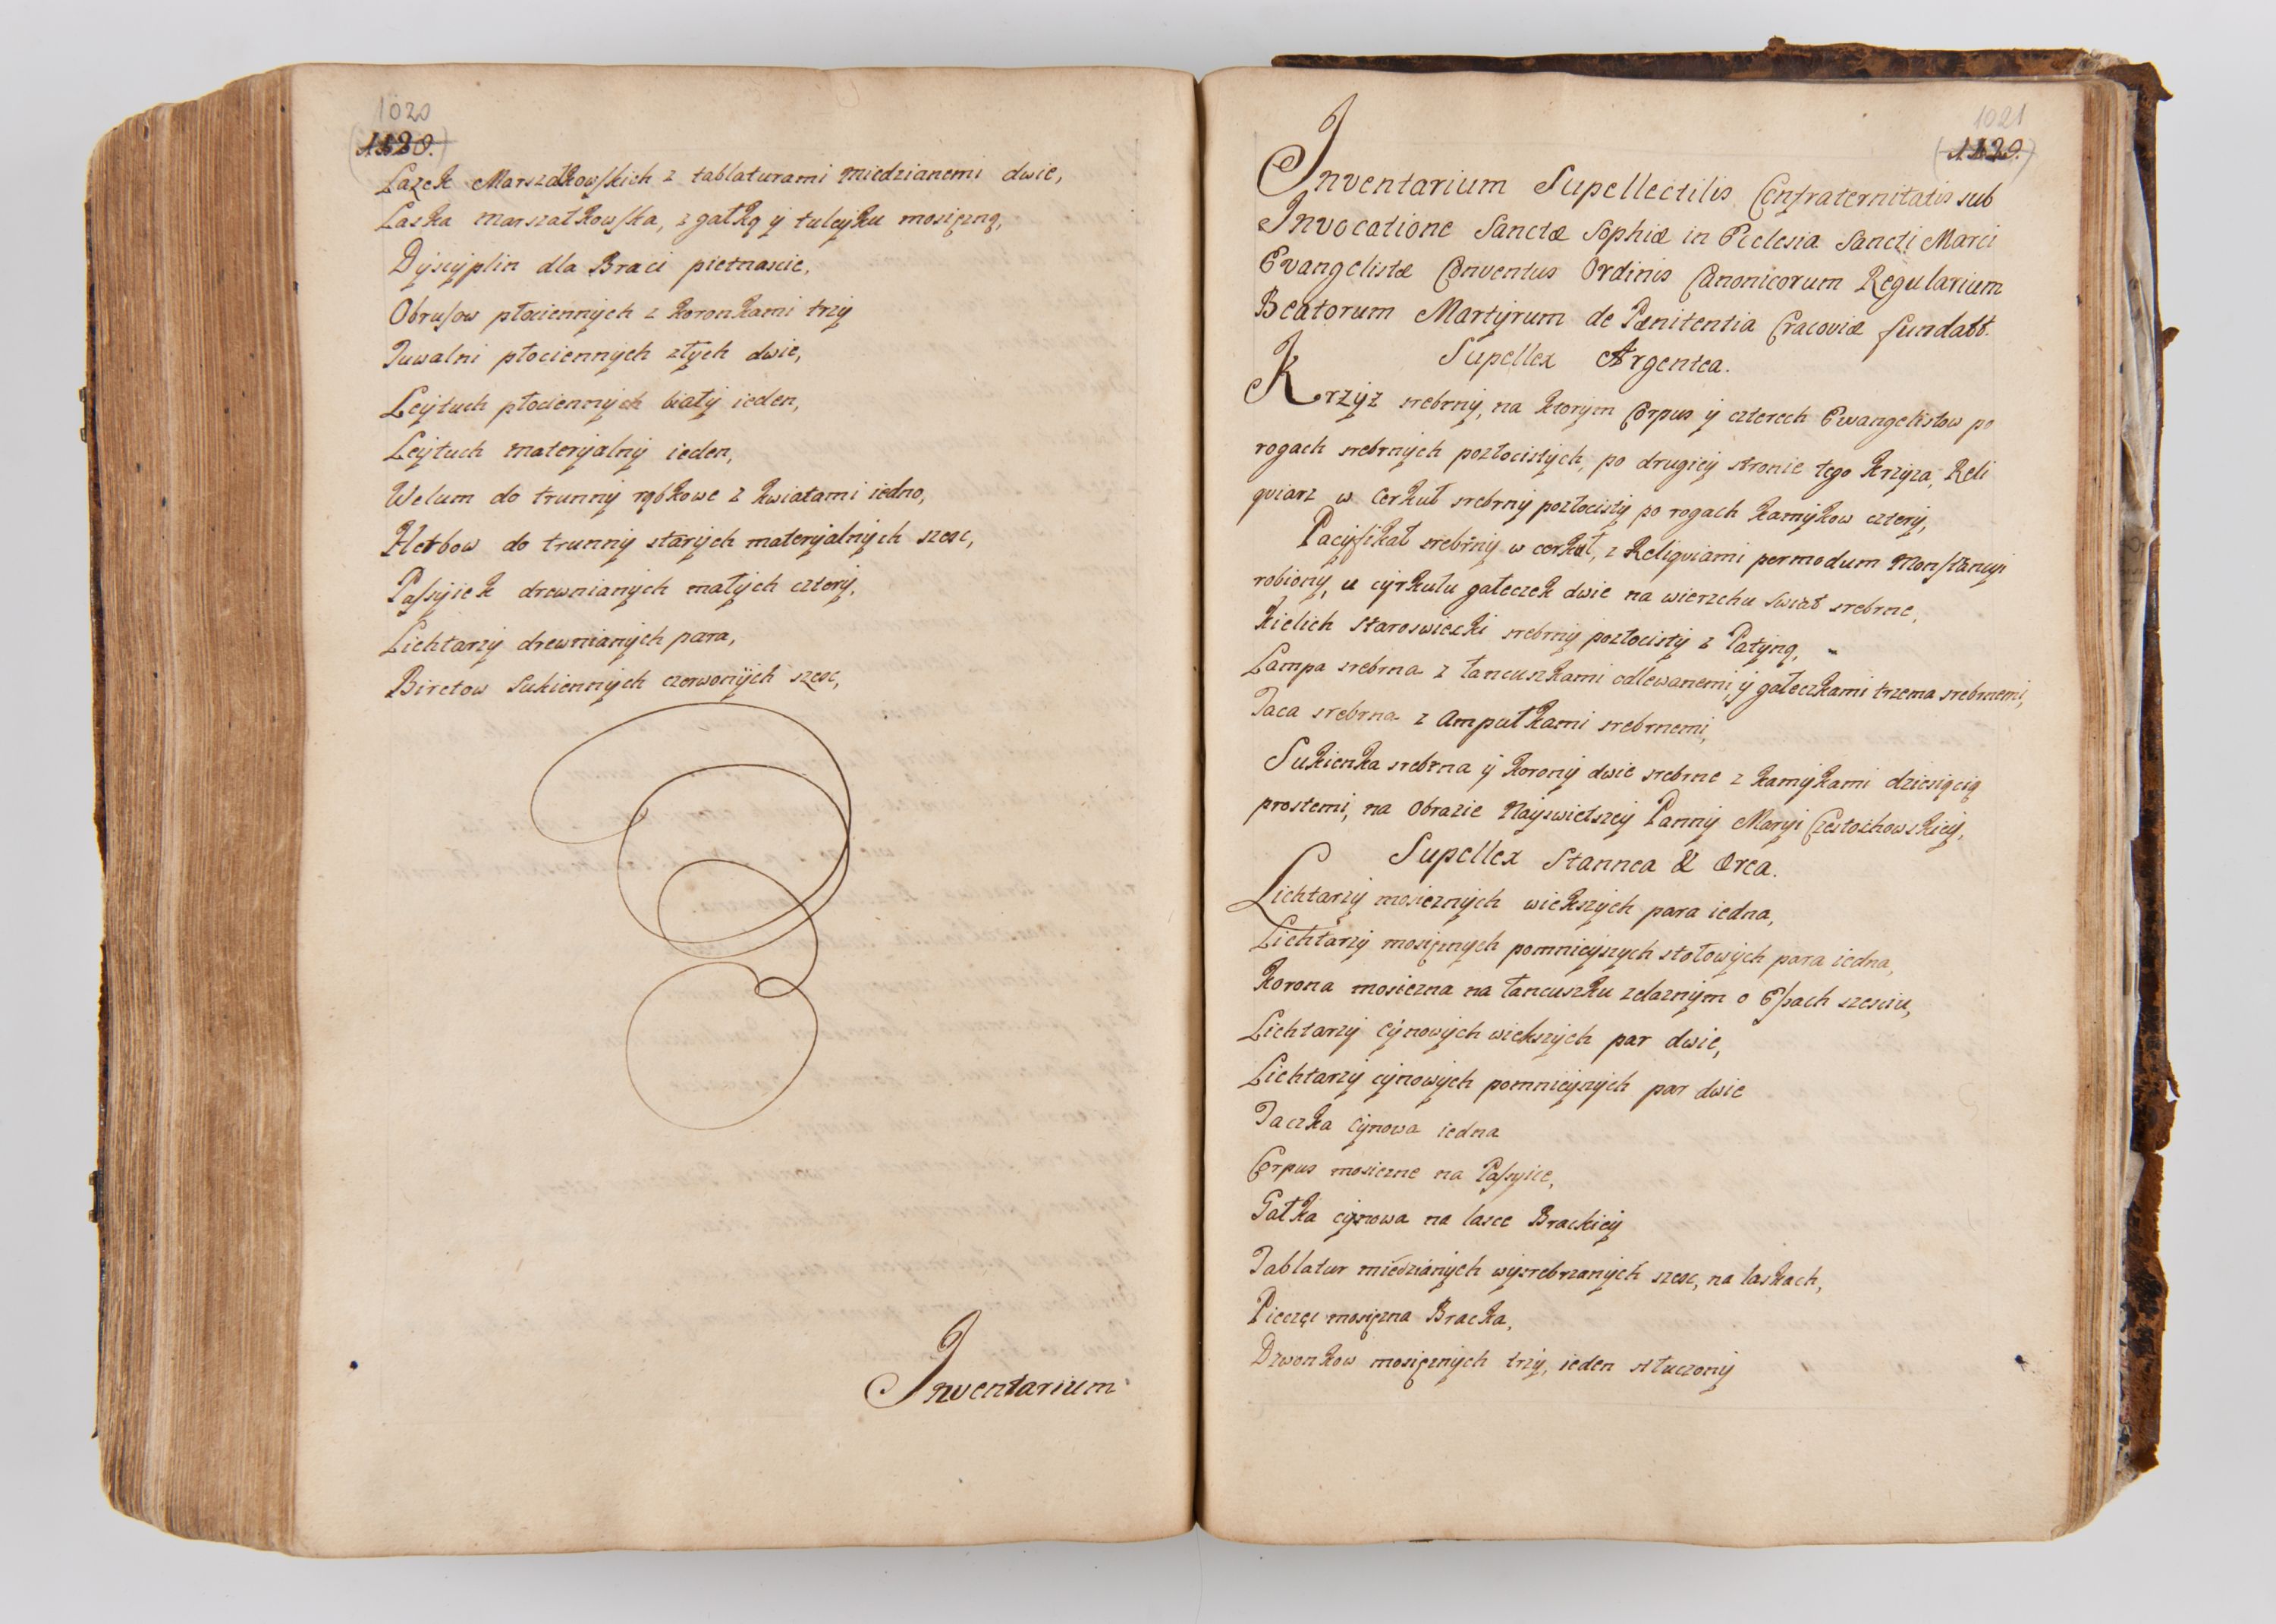 1020
1120.
Lazek Marszałkowskich z tablaturami miedzianemi dwie,
Laska marszałkowska, z gałką ÿ tuleÿku mosięzną,
Dÿscÿplin dla Braci pietnascie,
Obrusow płociennÿch z koronkami trzÿ
Tuwalni płociennÿch złÿch dwie,
Leÿtuch płociennÿch białÿ ieden,
Leÿtuch materÿalnÿ ieden,
Welum do trunnÿ rąbkowe z kwiatami iedno,
Herbow do trunnÿ starÿch materÿalnÿch szesc,
Passÿiek drewnianÿch małÿch czterÿ,
Lichtarzÿ drewnianÿch para,
Biretow sukiennÿch czerwonÿch szesc,
Inventarium
1021
1129.
Inventarium Supellectilis Confraternitatis sub
Invocatione Sanctæ Sophiæ in Ecclesia Sancti Marci
Evangelistæ Conventus Ordinis Canonicorum Regularium
Beatorum Martÿrum de Pænitentia Cracoviæ fundatt.
Supellex Argentea.
Krzÿz srebrnÿ, na ktorÿm Corpus ÿ czterech Ewangelistow po
rogach srebrnÿch pozłocistÿch, po drugieÿ stronie tego krzÿza, Reli
quiarz w Cerkuł srebrnÿ pozłocistÿ po rogach kamÿkow czterÿ,
Pacÿfikał srebrnÿ w cerkuł, z Reliquiami per modum Monstrancÿi
robionÿ, u cÿrkułu gałeczek dwie na wierzchu swiat srebrne,
Kielich staroswiecki srebrnÿ pozłocistÿ z Patÿną,
Lampa srebrna z łancuszkami odlewanemi, ÿ gałeczkami trzema srebrnemi,
Taca srebrna z ampułkami srebrnemi,
Sukienka srebrna ÿ koronÿ dwie srebrne z kamÿkami dziesiącią
prostemi, na Obrazie Naÿswietszeÿ Pannÿ Marÿi Czestochowskieÿ,
Supellex Stannea & Ærea.
Lichtarzÿ mosieznÿch wiekszÿch para iedna,
Lichtarzÿ mosięznÿch pomnieÿszÿch stołowÿch para iedna,
Korona mosiezna na łancuszku zelaznÿm o Essach szesciu,
Lichtarzÿ cÿnowÿch wiekszÿch par dwie,
Lichtarzÿ cÿnowÿch pomnieÿszÿch par dwie
Taczka cÿnowa iedna
Corpus mosiezne na Passÿice,
Gałka cÿnowa na lasce Brackieÿ
Tablatur miedzianÿch wÿsrebrzanÿch szesc, na laskach,
Pieczęc mosięzna Bracka,
Dzwonkow mosięznÿch trzÿ, ieden stłuczonÿ